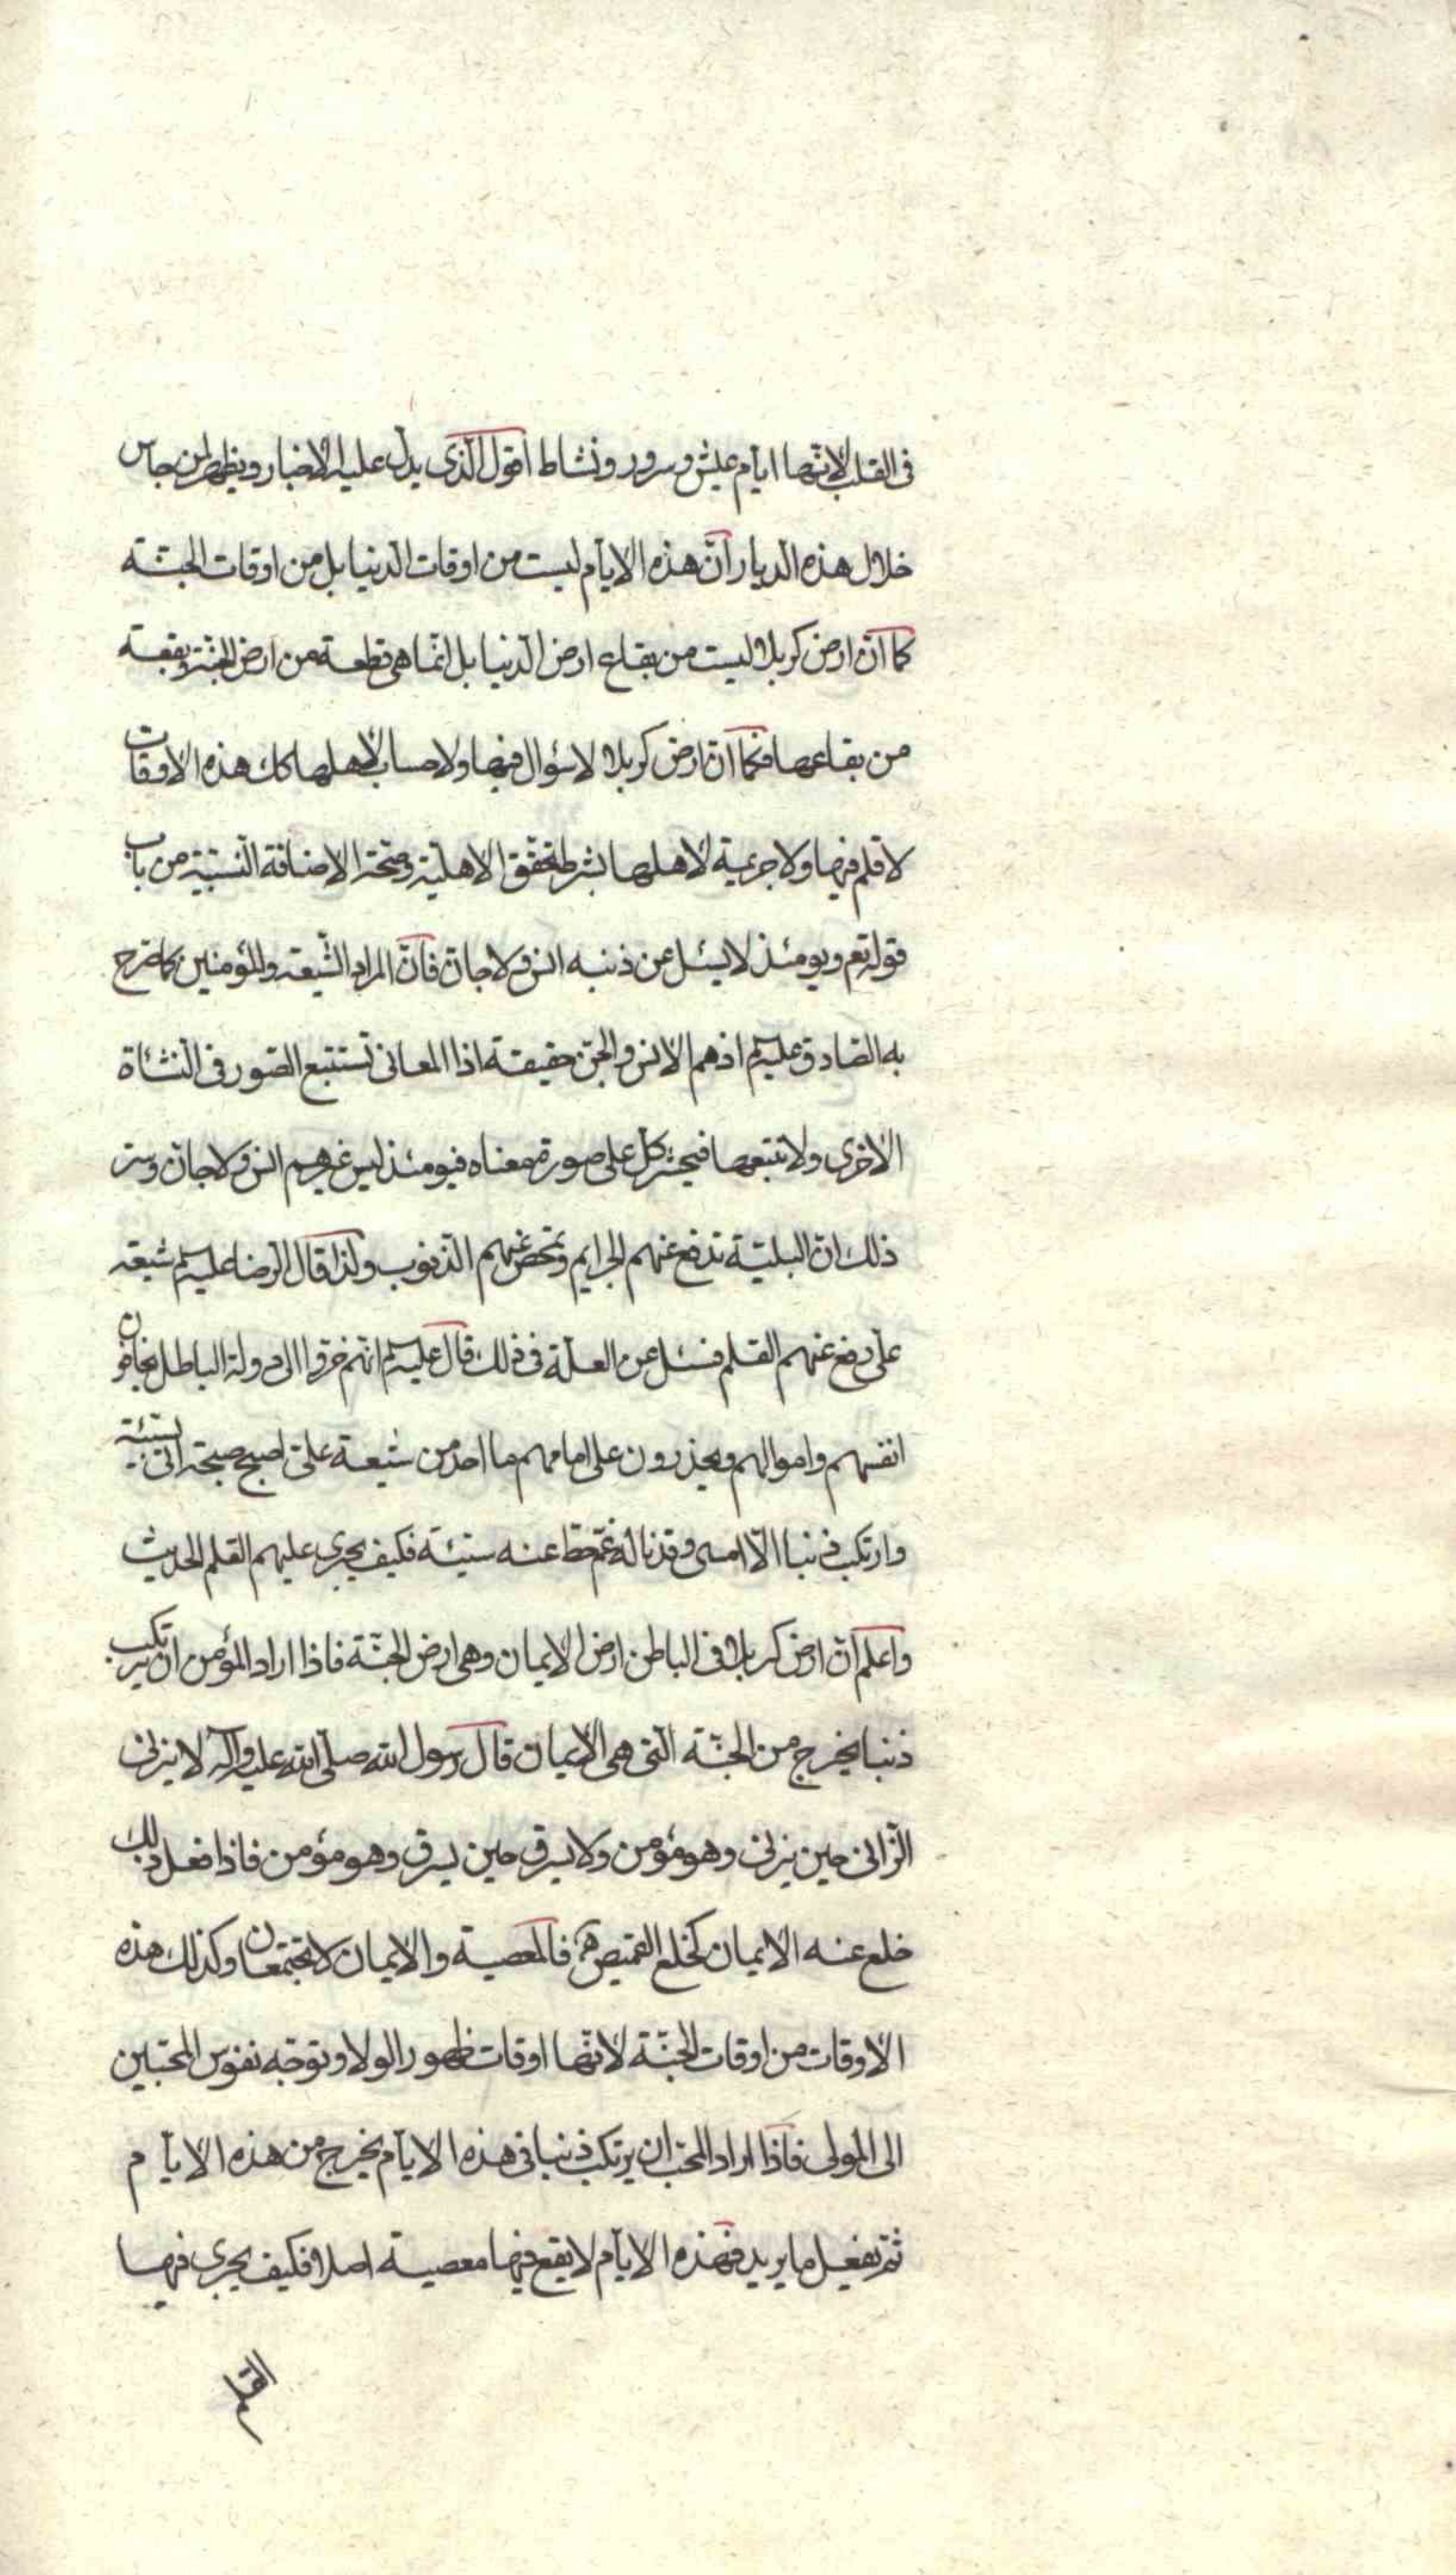 فى القلب لانّها ايّام عيش وسرور ونشاط اقول الّذى يدلّ عليه الاخبار ويظهر لمن جاس
خلال هذه الديار انّ هذه الايّام ليست من اوقات الدنيا بل من اوقات الجنّة
كما انّ ارض كربلا ليست من بقاع ارض الدنيا بل انّما هى قطعة من ارض الجنّة وبقعة
من بقاعها فكما انّ ارض كربلا لا سؤال فيها ولا حساب لاهلها كك هذه الاوقات
لا قلم فيها ولا جريمة لاهلها بشرط تحقق الاهليّة وصحّة الاضافة النسبيّة من باب
قوله تع ويومئذ لا يسئل عن ذنبه انس ولا جانّ فانّ المراد الشّيعة والمؤمنين كما صرّح
به الصّادق عليه‌السلم اذ هم الانس والجنّ حقيقة اذ المعانى تستتبع الصّور فى النشاة
الاخرى ولا تتبعها فيحشر كلّ على صورة معناه فيومئذ ليس غيرهم انس ولا جانّ وسرّ
ذلك انّ البليّة تدفع عنهم الجرايم وتمحص عنهم الذّنوب ولذا قال الرّضا عليه‌السلم شيعة
علىّ رفع عنهم القلم فسئل عن العلّة فى ذلك قال عليه‌السلم انّهم اخّروا الى دولة الباطل يخافون
انفسهم واموالهم ويحذرون على امامهم ما احد من شيعة علىّ اصبح صبيحة اتى بسيّئة
وارتكب ذنبا الّا امسى وقد ناله غمّ حطّ عنه سيّئة فكيف يجرى عليهم القلم الحديث
واعلم انّ ارض كربلا فى الباطن ارض الايمان وهى ارض الجنّة فاذا اراد المؤمن ان يرتكب
ذنبا يخرج من الجنّة الّتى هى الايمان قال رسول الله صلّى الله عليه وآله لا يزنى
الزّانى حين يزنى وهو مؤمن ولا يسرق حين يسرق وهو مؤمن فاذا فعل ذلك
خلع عنه الايمان كخلع القميص فالمعصية والايمان لا يجتمعان وكذلك هذه
الاوقات من اوقات الجنّة لانّها اوقات ظهور الولا وتوجّه نفوس المحبّين
الى المولى فاذا اراد المحبّ ان يرتكب ذنبا فى هذه الايّام يخرج من هذه الايّام
ثمّ يفعل ما يريد فهذه الايّام لا يقع فيها معصية اصلا فكيف يجرى فيها
القلم